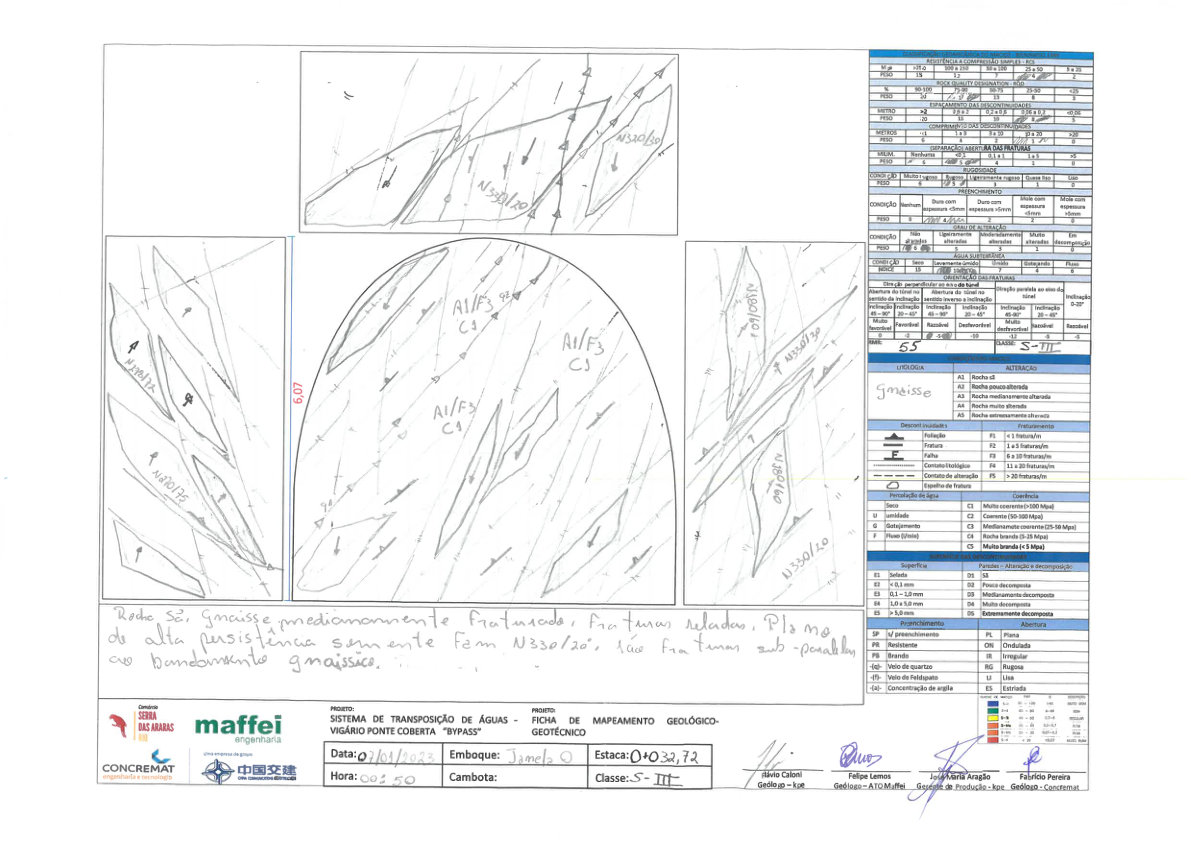 N320/30
N330/20
N320/75
A1/F3
C1
A1/F3
C1
A1/F3
C1
6,07
N330/30
N330/20
RESISTÊNCIA A COMPRESSÃO SIMPLES - RCS
100 a 250 50 a 100 25 a 50 5 a 25
PESO 15 12 7 4 2
ROCK QUALITY DESIGNATION - RQD
% 90-100 75-90 50-75 25-50 <25
PESO 20 13 8 3
ESPAÇAMENTO DAS DESCONTINUIDADES
METRO >2 0,6 a 2 0,2 a 0,6 0,06 a 0,2 <0,06
PESO 20 15 10 8 5
COMPRIMENTO DAS DESCONTINUIDADES
METROS <1 1 a 3 3 a 10 10 a 20 >20
PESO 6 4 2 1 0
SEPARAÇÃO/ABERTURA DAS FRATURAS
MILIM. Nenhuma <0,1 0,1 a 1 1 a 5 >5
PESO 6 5 4 1 0
RUGOSIDADE
CONDIÇÃO Muito rugoso Rugoso Ligeiramente rugoso Quase liso Liso
PESO 6 5 3 1 0
PREENCHIMENTO
CONDIÇÃO Nenhum Duro com espessura <5mm Duro com espessura >5mm Mole com espessura <5mm Mole com espessura >5mm
PESO 6 4 2 2 0
GRAU DE ALTERAÇÃO
CONDIÇÃO Não alteradas Ligeiramente alteradas Moderadamente alteradas Muito alteradas Em decomposição
PESO 6 5 3 1 0
ÁGUA SUBTERRÂNEA
CONDIÇÃO Seco Levemente úmido Úmido Gotejando Fluxo
INDICE 15 10 7 4 0
ORIENTAÇÃO DAS FRATURAS
Direção perpendicular ao eixo do túnel
Direção paralela ao eixo do túnel
Inclinação 0-20°
Abertura do túnel no sentido da inclinação
Abertura do túnel no sentido inverso a inclinação
Inclinação 45 – 90° Inclinação 20 – 45° Inclinação 45 – 90° Inclinação 20 – 45° Inclinação 45-90° Inclinação 20 – 45°
Muito favorável Favorável Razoável Desfavorável Muito desfavorável Razoável Razoável
0 -2 -5 -10 -12 -5 -5
RMR: 55 CLASSE: S-III
LITOLOGIA ALTERAÇÃO
Gnaisse
A1 Rocha sã
A2 Rocha pouco alterada
A3 Rocha medianamente alterada
A4 Rocha muito alterada
A5 Rocha extremamente alterada
Descontinuidades Fraturamento
Foliação F1 < 1 fratura/m
Fratura F2 1 a 5 fraturas/m
F Falha F3 6 a 10 fraturas/m
Contato litológico F4 11 a 20 fraturas/m
Contato de alteração F5 > 20 fraturas/m
Espelho de fratura
Percolação de água Coerência
Seco C1 Muito coerente (>100 Mpa)
U umidade C2 Coerente (50-100 Mpa)
G Gotejamento C3 Medianamente coerente (25-50 Mpa)
F Fluxo (l/min) C4 Rocha branda (5-25 Mpa)
C5 Muito branda (< 5 Mpa)
Superfície Paredes – Alteração e decomposição
E1 Selada D1 Sã
E2 < 0,1 mm D2 Pouco decomposta
E3 0,1 – 1,0 mm D3 Medianamente decomposta
E4 1,0 a 5,0 mm D4 Muito decomposta
E5 > 5,0 mm D5 Extremamente decomposta
Preenchimento Abertura
SP s/ preenchimento PL Plana
PR Resistente ON Ondulada
PB Brando IR Irregular
-(q)- Veio de quartzo RG Rugosa
-(f)- Veio de Feldspato LI Lisa
-(a)- Concentração de argila ES Estriada
Rocha Sã, Gnaisse, medianamente fraturado, fraturas seladas, Plano
de alta persistência somente Fam N330/20°, são fraturas sub-paralelas
ao bandamento gnaissico.
Consórcio
SERRA
DAS ARARAS
maffei
engenharia
CONCREMAT
engenharia e tecnologia
uma empresa do grupo
中国交建
PROJETO:
SISTEMA DE TRANSPOSIÇÃO DE ÁGUAS -
VIGÁRIO PONTE COBERTA "BYPASS"
PROJETO:
FICHA DE MAPEAMENTO GEOLÓGICO-
GEOTÉCNICO
Data: 07/01/2023 Emboque: Janela O Estaca: 0+032,72
Hora: 00:50 Cambota: Classe: S-III
Flávio Caloni
Geólogo – kpe
Felipe Lemos
Geólogo – ATO Maffei
José Maria Aragão
Gerente de Produção - kpe
Fabrício Pereira
Geólogo - Concremat